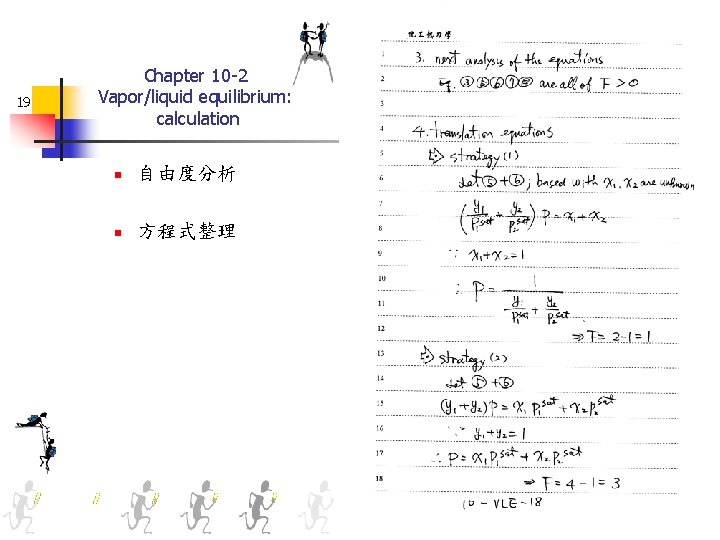 19
Chapter 10-2
Vapor/liquid equilibrium:
calculation
自由度分析
方程式整理
化工熱力學
1 3. next analysis of the equations
2 Eq. ③⑤⑥⑦⑧ are all of F > 0
3
4 4. translation equations
5 strategy (1)
6 let ⑤+⑥, based with x1, x2 are unknown
7 (y1/P1^sat + y2/P2^sat) P = x1 + x2
8
9 ∵ x1+x2=1
10 ∴ P = 1/(y1/P1^sat + y2/P2^sat)
11
12 ⇒ F = 2-1 = 1
13 strategy (2)
14 let ⑤+⑥
15 (y1+y2)P = x1 P1^sat + x2 P2^sat
16 ∵ y1+y2=1
17 ∴ P = x1 P1^sat + x2 P2^sat
18 ⇒ F = 4-1 = 3
10-VLE-18